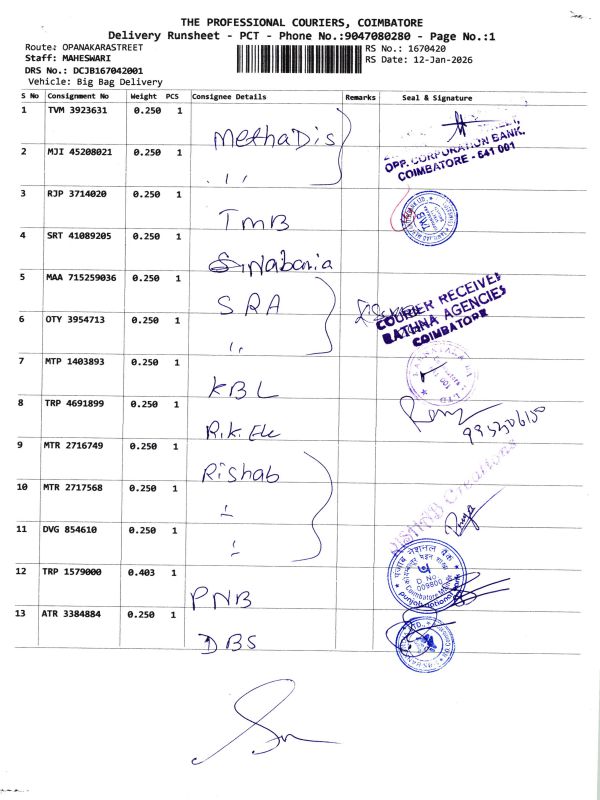 THE PROFESSIONAL COURIERS, COIMBATORE
Delivery Runsheet - PCT - Phone No.:9047080280 - Page No.:1
Route: OPANAKARASTREET
RS No.: 1670420
Staff: MAHESWARI
RS Date: 12-Jan-2026
DRS No.: DCJB167042001
Vehicle: Big Bag Delivery
S No Consignment No Weight PCS Consignee Details Remarks Seal & Signature
1 TVM 3923631 0.250 1 MethaDis
2 MJI 45208021 0.250 1 ,,
OPP. CORPORATION BANK,
COIMBATORE - 641 001
3 RJP 3714020 0.250 1 TMB
4 SRT 41089205 0.250 1
5 MAA 715259036 0.250 1 SRA
COURIER RECEIVED
RATHNA AGENCIES
COIMBATORE
6 OTY 3954713 0.250 1 ,,
7 MTP 1403893 0.250 1 KBL
8 TRP 4691899 0.250 1 R.K. Ele
9 MTR 2716749 0.250 1 Rishab
10 MTR 2717568 0.250 1
11 DVG 854610 0.250 1
12 TRP 1579000 0.403 1 PNB
पंजाब नैशनल बैंक
D No
009800
Coimbatore Main
punjab national bank
13 ATR 3384884 0.250 1 DBS